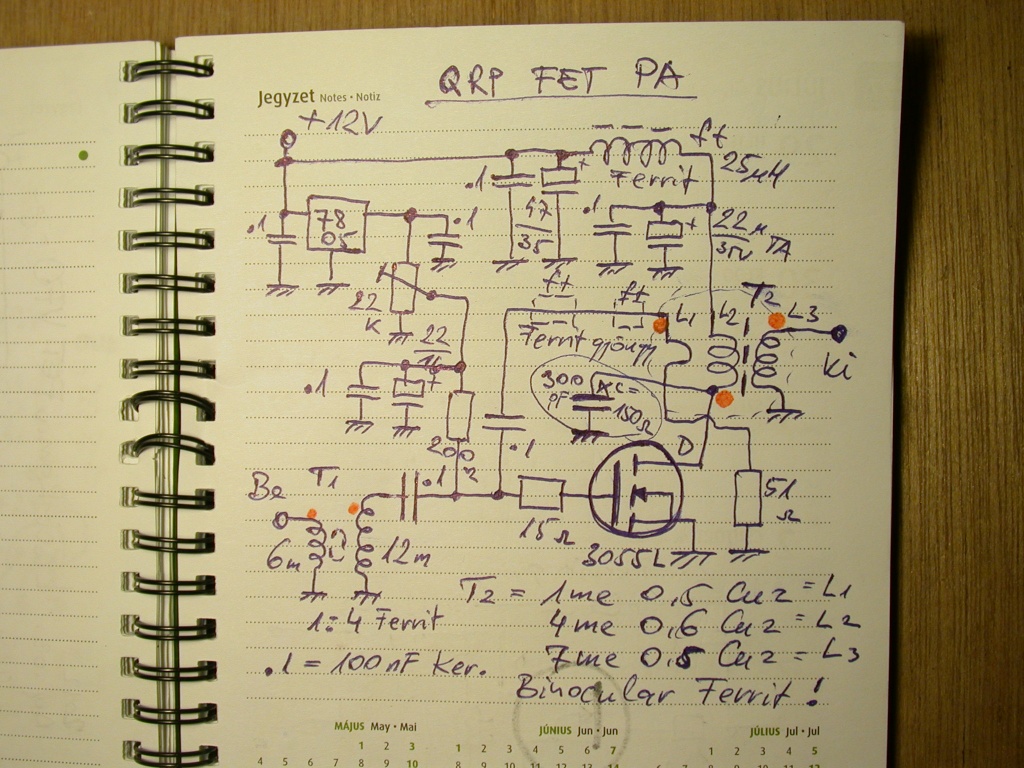 QRP FET PA
Jegyzet Notes • Notiz
+12V
ft
25µH
Ferrit
.1
+
.1
78
05
.1
.1
47
35
+
22µ
35V TA
22
K
ft
ft
T2
L1
L2
L3
Ferrit gyöngy
Ki
22
.1
+
300
pF
XC=
150Ω
200
Ω
.1
D
Be
T1
.1
51
Ω
15Ω
6m
12m
3055L
1:4 Ferrit
T2 = 1me 0,5 CuZ = L1
4me 0,6 CuZ = L2
7me 0,5 CuZ = L3
.1 = 100nF Ker.
Binocular Ferrit !
MÁJUS May • Mai
JÚNIUS Jun • Jun
JÚLIUS Jul • Jul
1 2 3
1 2 3 4 5 6 7
1 2 3 4 5
4 5 6 7 8 9 10
8 9 10 11 12 13 14